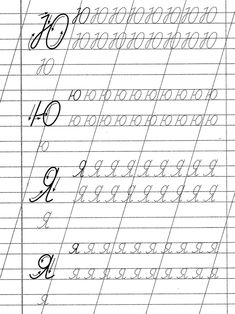 Ю Ю Ю Ю Ю Ю Ю Ю Ю Ю
Ю Ю Ю Ю Ю Ю Ю Ю Ю
Ю
ю ю ю ю ю ю ю ю ю ю ю
ю ю ю ю ю ю ю ю ю ю
ю
Я Я Я Я Я Я Я Я Я Я
Я Я Я Я Я Я Я Я Я
Я
я я я я я я я я я я я
я я я я я я я я я я
я